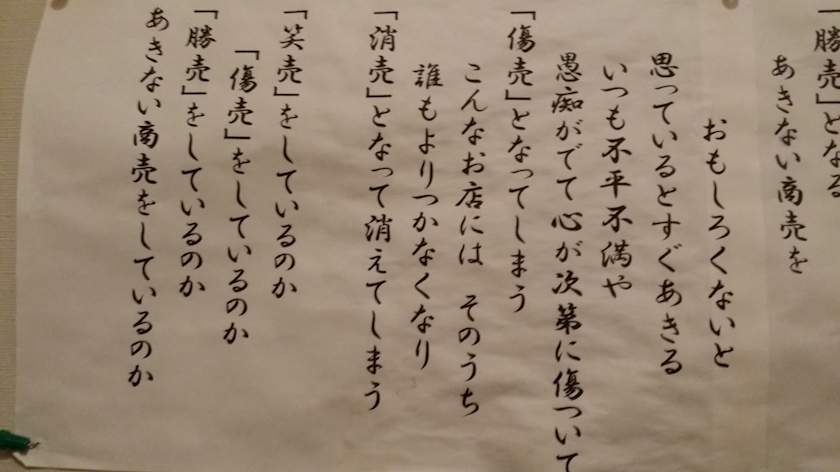 「勝売」となる
あきない商売を
おもしろくないと
思っているとすぐあきる
いつも不平不満や
愚痴がでて心が次第に傷ついて
「傷売」となってしまう
こんなお店には そのうち
誰もよりつかなくなり
「消売」となって消えてしまう
「笑売」をしているのか
「傷売」をしているのか
「勝売」をしているのか
あきない商売をしているのか